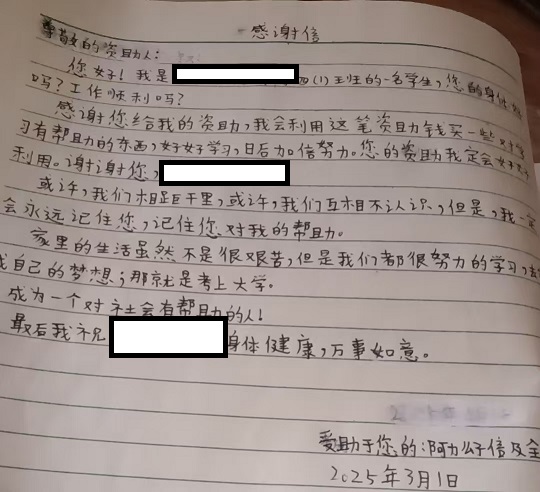 感谢信
尊敬的资助人：
您好！我是四(1)王班的一名学生，您的身体好
吗？工作顺利吗？
感谢您给我的资助，我会利用这笔资助钱买一些对学
习有帮助的东西，好好学习，日后加倍努力。您的资助我定会好好
利用。谢谢您，
或许，我们相距千里，或许，我们互相不认识，但是，我一定
会永远记住您，记住您对我的帮助。
家里的生活虽然不是很艰苦，但是我们都很努力的学习，
成自己的梦想；那就是考上大学。
成为一个对社会有帮助的人！
最后我祝身体健康，万事如意。
受助于您的：阿力公子倍及全
2025年3月1日